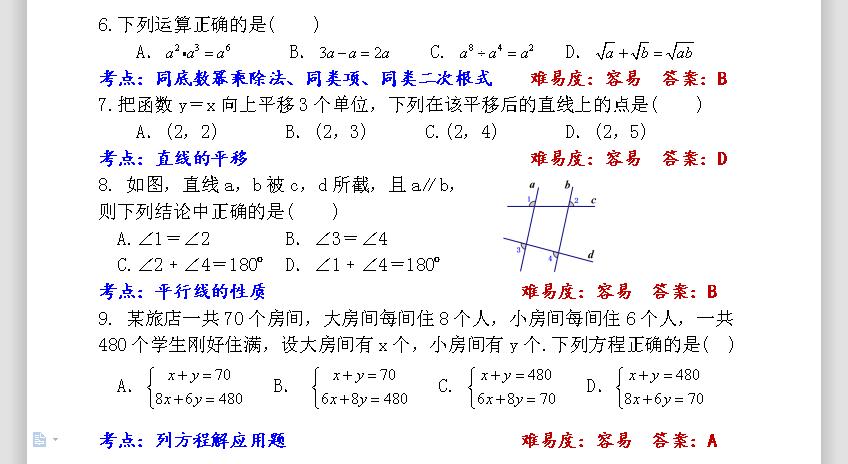 6.下列运算正确的是(  )
A. a²•a³=a⁶ B. 3a-a=2a C. a⁸÷a⁴=a² D. √a+√b=√ab
考点：同底数幂乘除法、同类项、同类二次根式 难易度：容易 答案：B
7.把函数y=x向上平移3个单位，下列在该平移后的直线上的点是(  )
A.(2，2) B.(2，3) C.(2，4) D.(2，5)
考点：直线的平移 难易度：容易 答案：D
8. 如图，直线a，b被c，d所截，且a∥b，
则下列结论中正确的是(  )
A.∠1=∠2 B. ∠3=∠4
C.∠2+∠4=180° D. ∠1+∠4=180°
a b c 1 2 3 4 d
考点：平行线的性质 难易度：容易 答案：B
9. 某旅店一共70个房间，大房间每间住8个人，小房间每间住6个人，一共
480个学生刚好住满，设大房间有x个，小房间有y个.下列方程正确的是(  )
A. { x+y=70 B. { x+y=70 C. { x+y=480 D. { x+y=480
8x+6y=480 6x+8y=480 6x+8y=70 8x+6y=70
考点：列方程解应用题 难易度：容易 答案：A